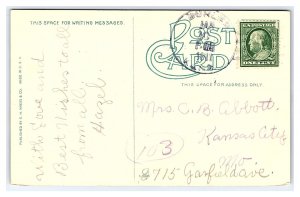 THIS SPACE FOR WRITING MESSAGES.
POST
CARD
THIS SPACE FOR ADDRESS ONLY.
With Love and
Best Wishes to all
from all,
Hazel.
Mrs. C. B. Abbott
Kansas City,
Mo
103
3715 Garfield Ave.
ONE CENT